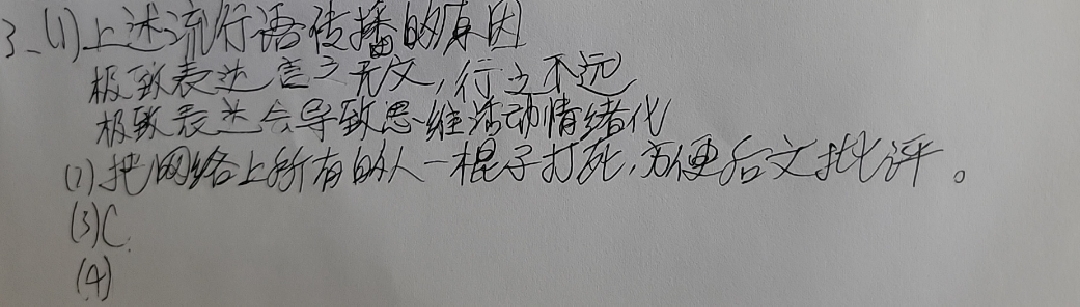 3、(1)上述流行语传播的原因
极致表达言之无文,行之不远
极致表达会导致思维活动情绪化
(2)把网络上所有的人一棍子打死,方便后文批评。
(3)C.
(4)